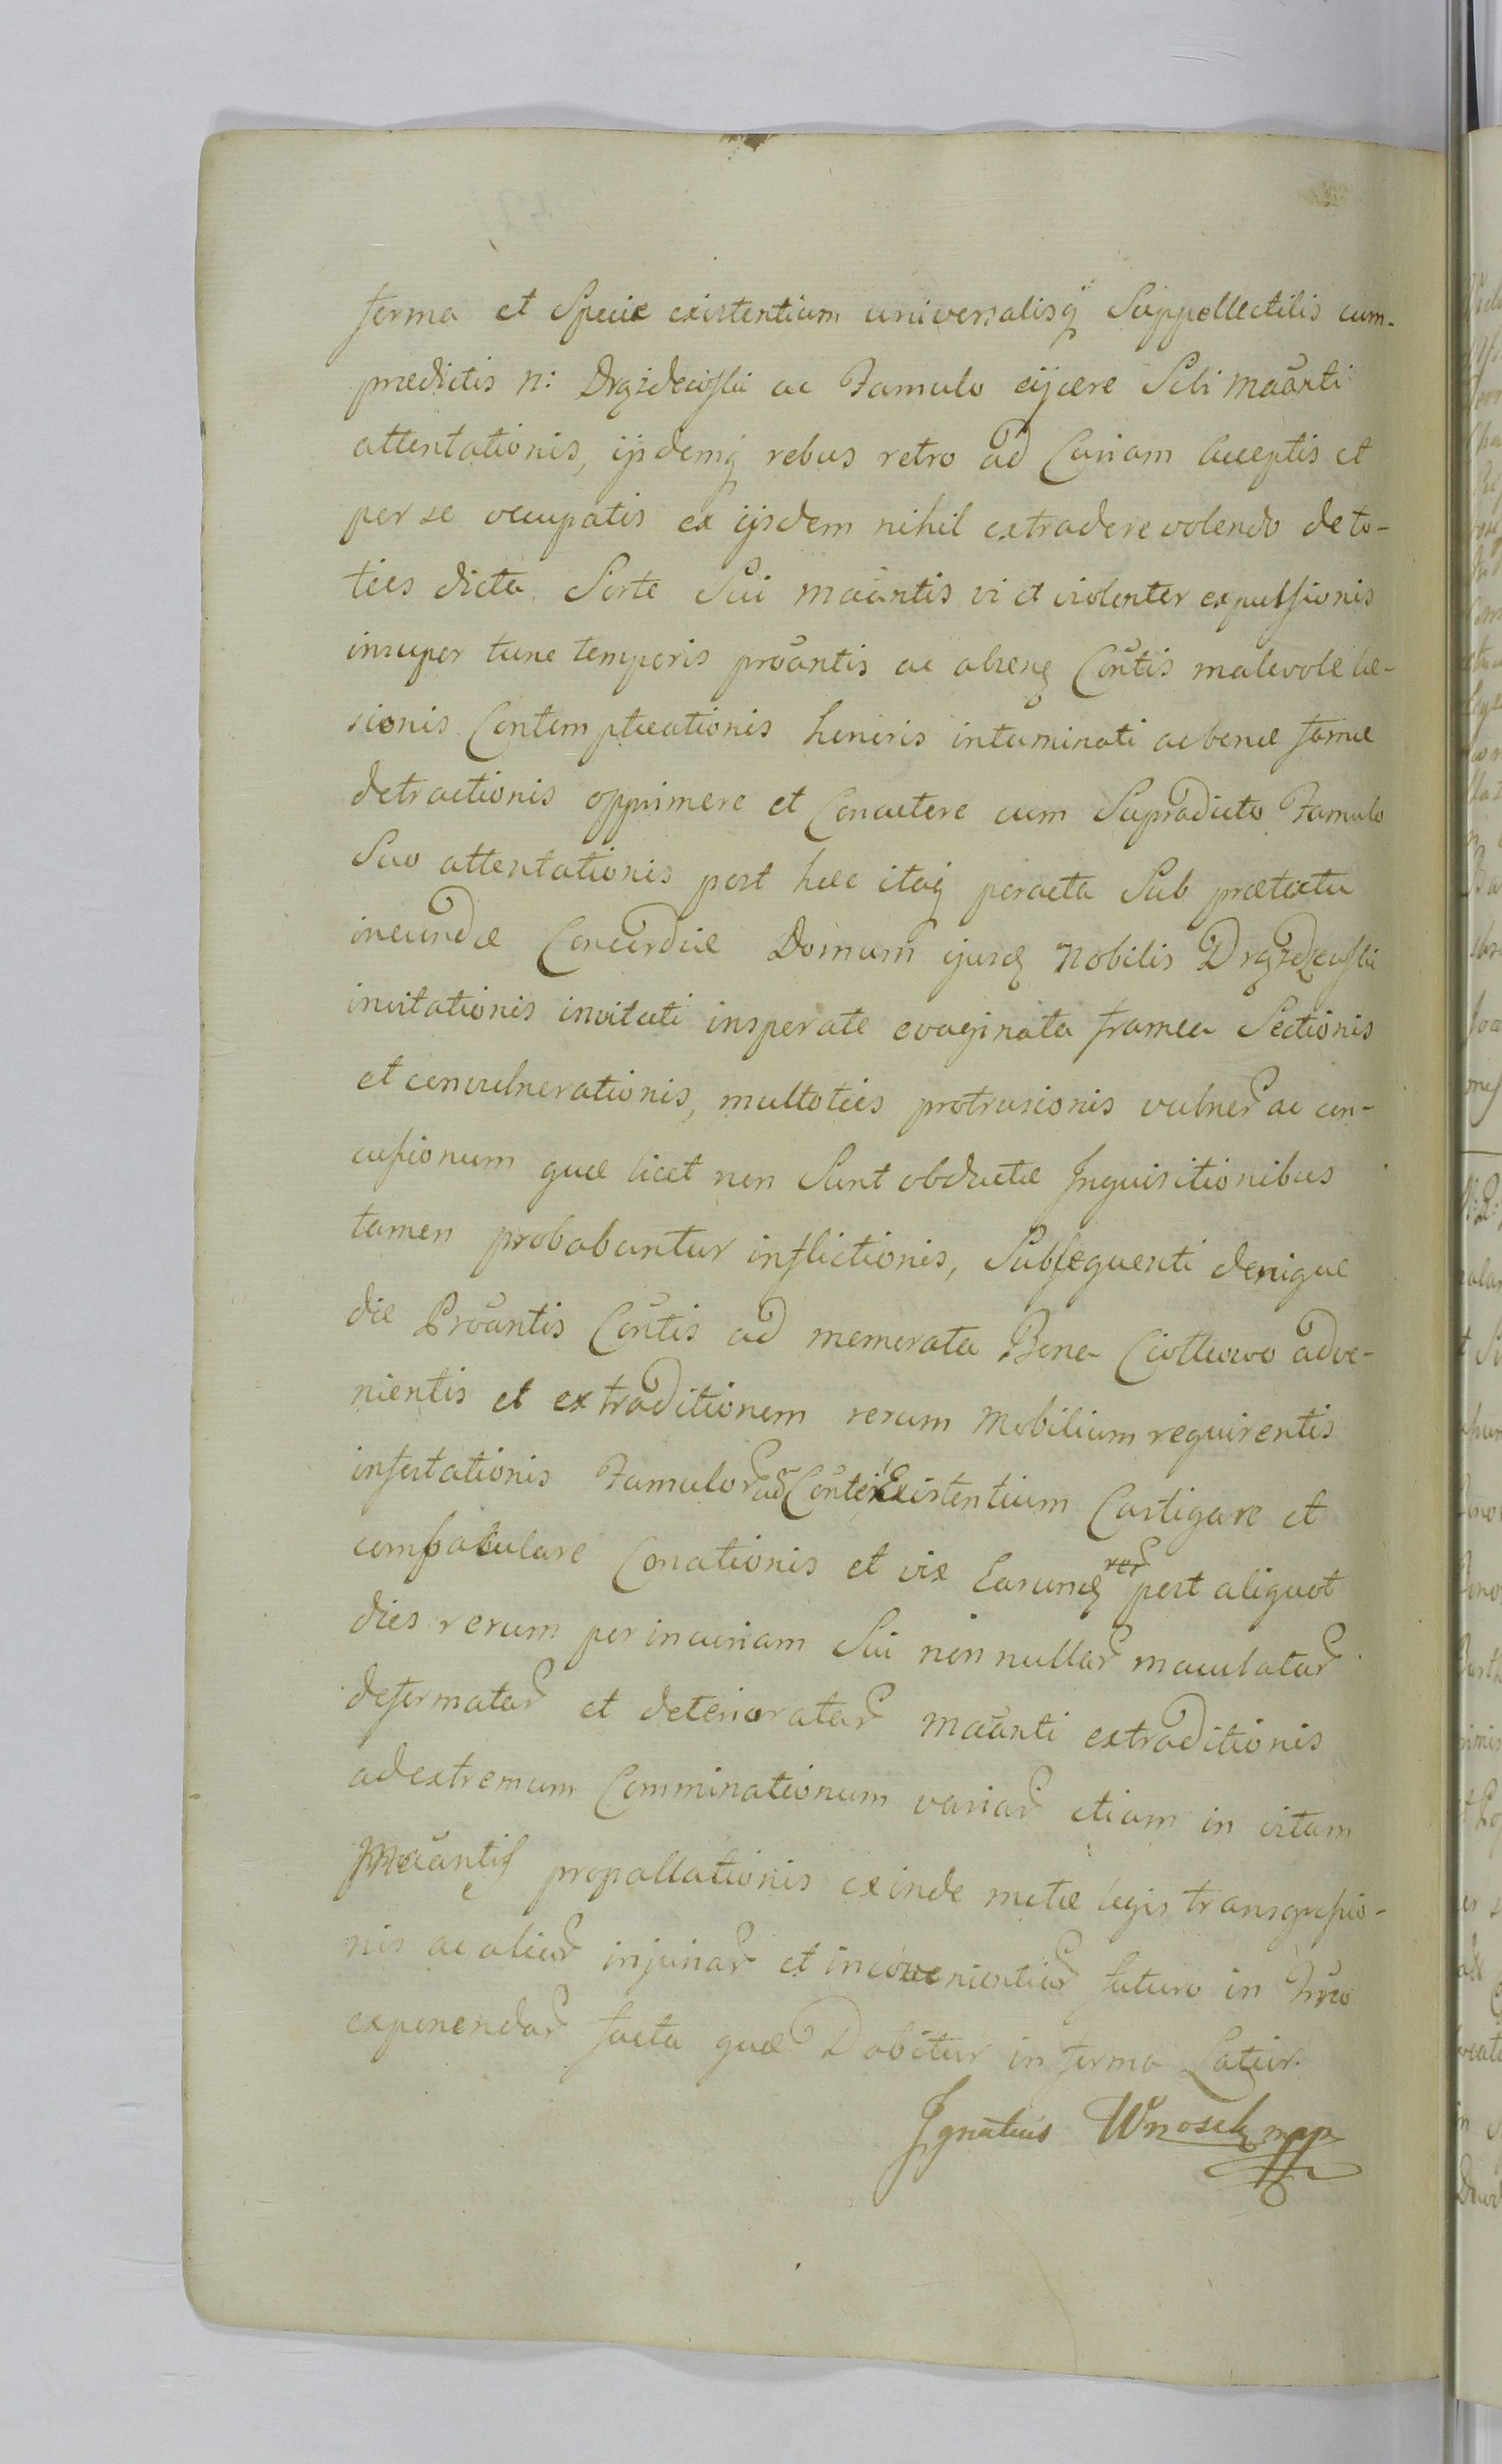 forma et Specie existentium universalisq Suppellectilis cum-
prædictis n: Drązdewski ac Famulo eijcere Sibi maãnti
attentationis, ijsdemq rebus retro ad Curiam acceptis et
per se occupatis ex ijsdem nihil extradere volendo de to-
ties dicta Sorte Sui maãntis vi et violenter expulsionis
insuper tunc temporis proãntis ac absenę Cõntis malevole læ-
sionis Contemptuationis honoris intuminati ac bonæ famæ
detractionis opprimere et Concutere cum Supradicto Famulo
Suo attentationis post hæc itaq peracta Sub prætextu
ineundæ Concordiæ Domum ejusdę Nobilis Drązdzewski
invitationis invitati insperate evaginata framea Sectionis
et convulnerationis, multoties protrusionis vulner ac con-
cussionum quæ licet non Sunt obductæ Inquisitionibus
tamen probabantur inflictionis, Subsequenti denique
die Proãntis Cõntis ad memorata Bona Ciottuowo adve-
nientis et extraditionem rerum Mobilium requirentis
infestationis Famulor ad Cõntem Existentium Castigare et
compabulare Conationis et vix Earundę rer post aliquot
dies rerum per incuriam Sui non nullar maculatar
deformatar et deterioratar maãnti extraditionis
ad extremum Comminationum variar etiam in vitam
Maãntis propallationis exinde metæ legis transgressio-
nis ac aliar injuriar et inconvenientiar futuro in Trmo
exponendar facta quæ Dabitur in forma Latior.
Ignatius Wnosek mpp